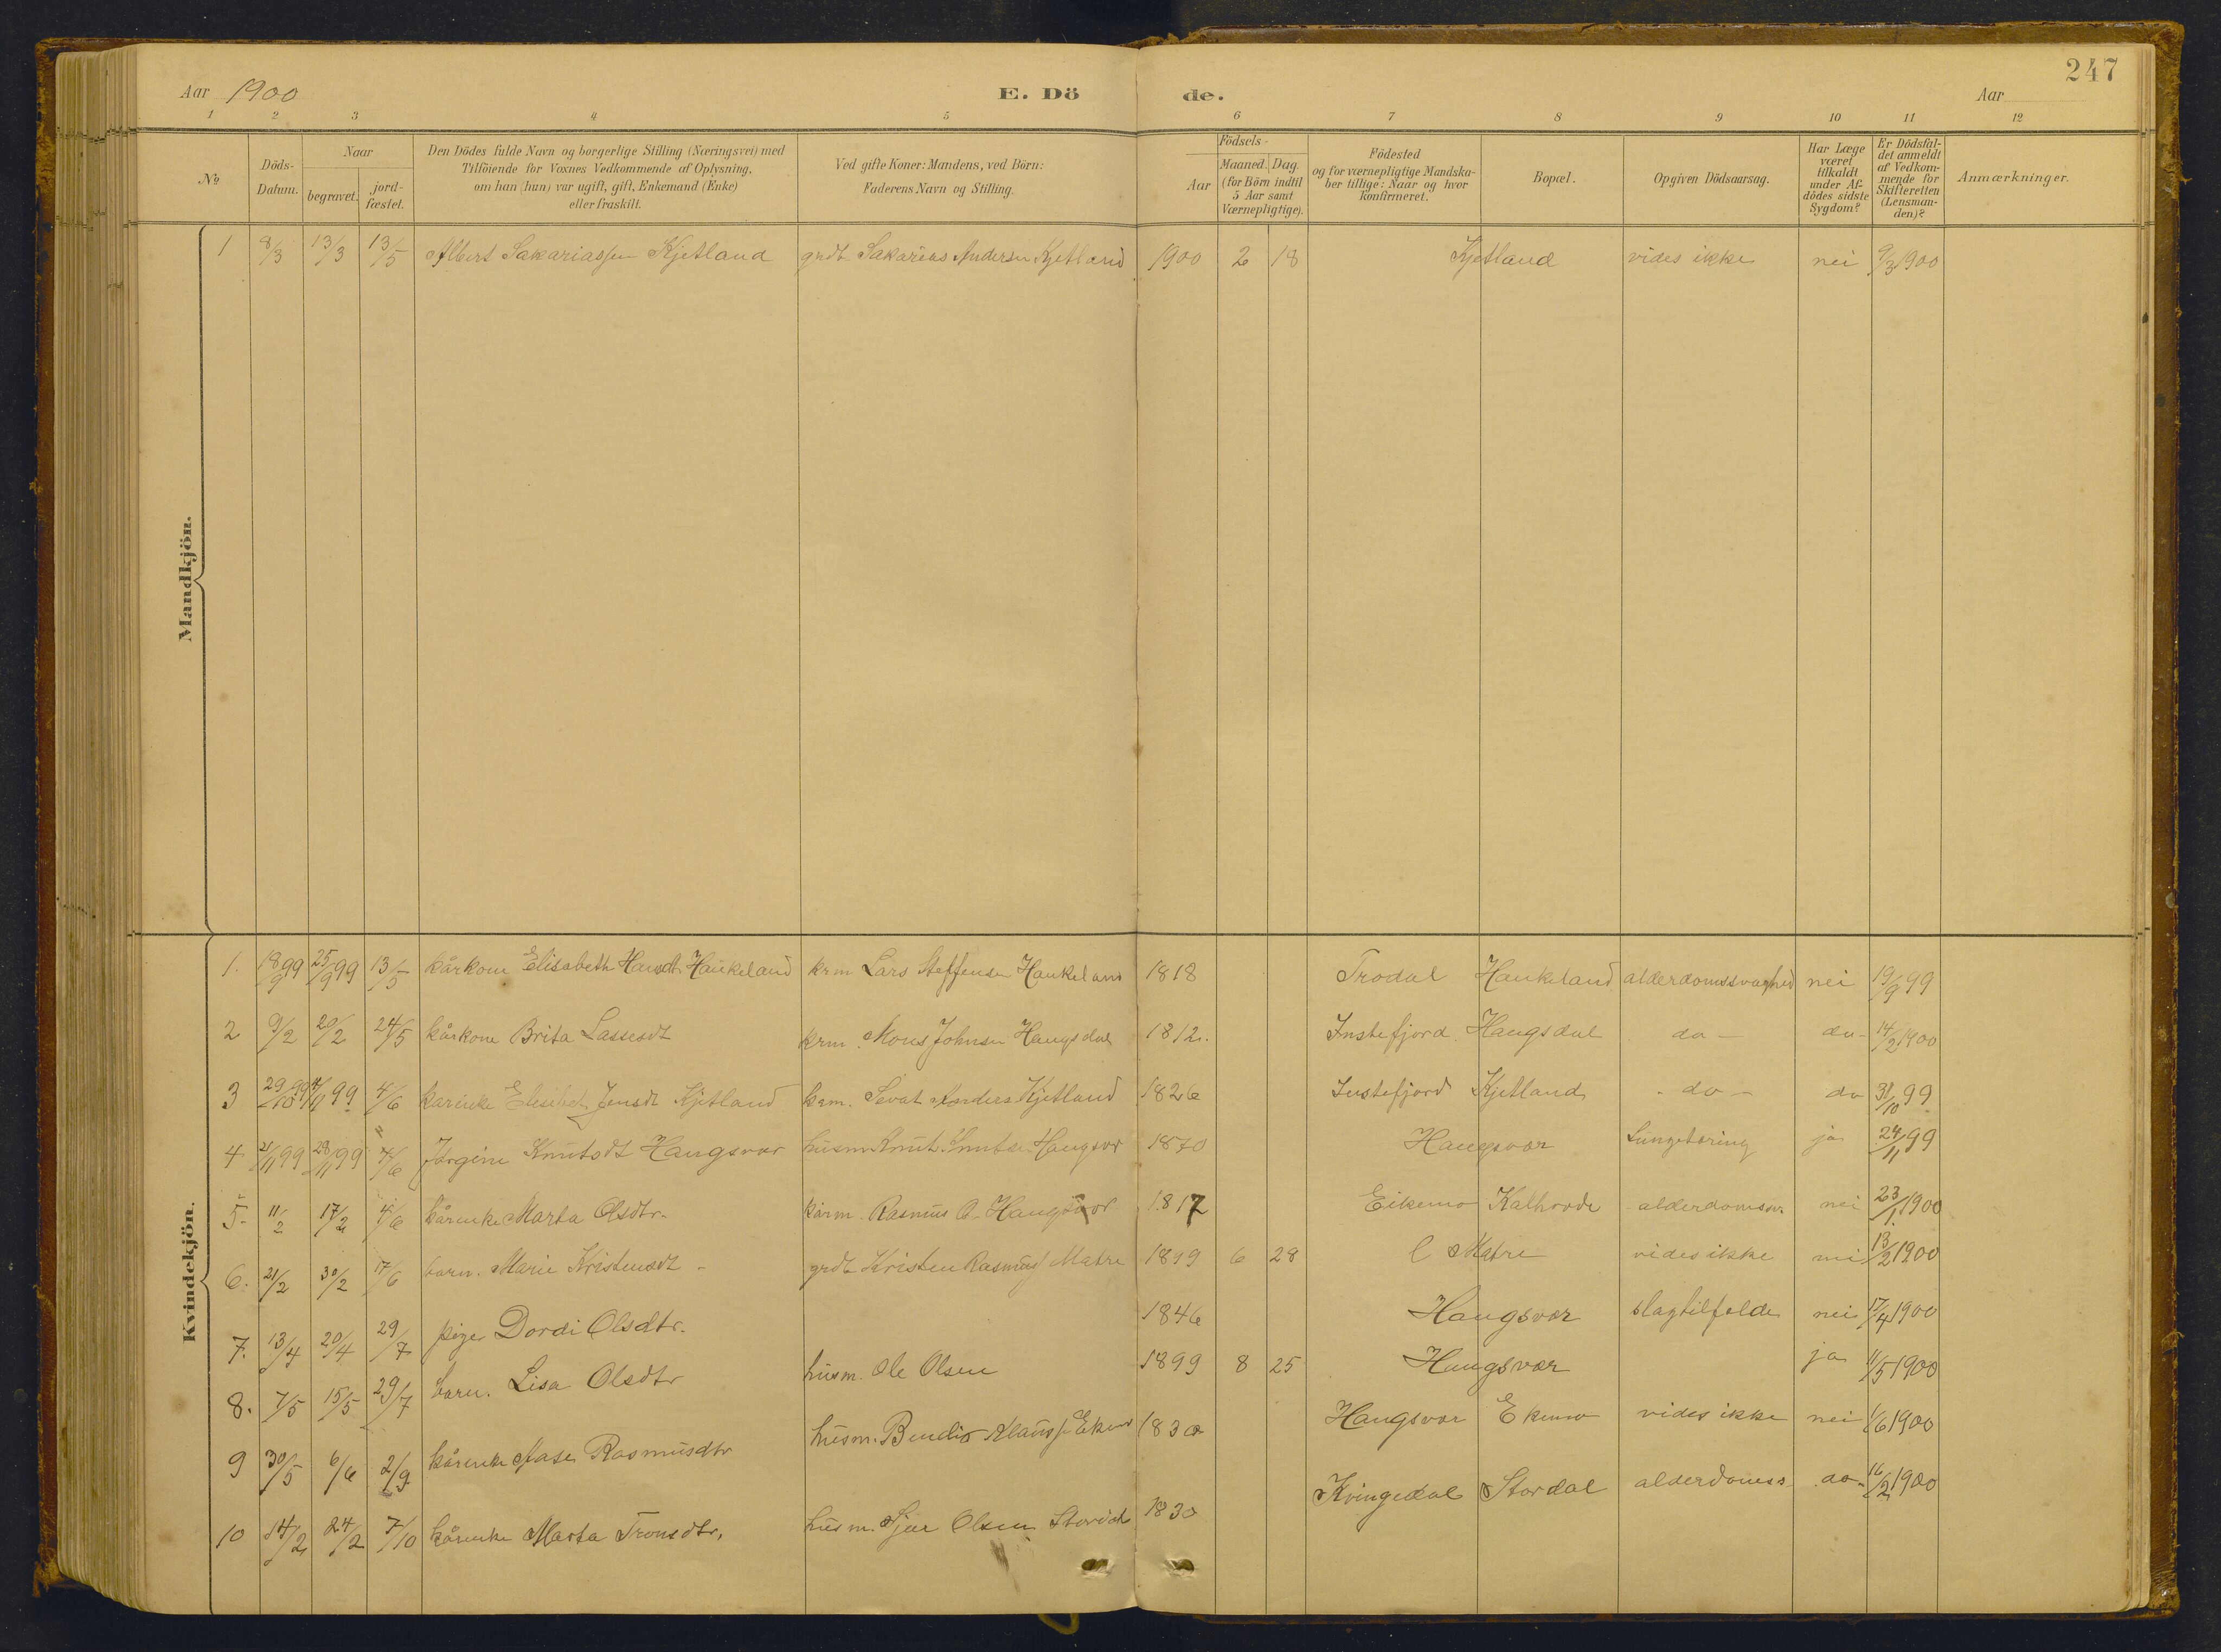 247
Aar 1900 E. Dö de. Aar
1 2 3 4 5 6 7 8 9 10 11 12
No
Döds-Datum.
Naar
begravet.
jord-fæstet.
Den Dödes fulde Navn og borgerlige Stilling (Næringsvei) med
Tilföiende for Voxnes Vedkommende af Oplysning,
om han (hun) var ugift, gift, Enkemand (Enke)
eller fraskilt.
Ved gifte Koner: Mandens, ved Börn:
Faderens Navn og Stilling.
Födsels-
Aar
Maaned. Dag.
(for Börn indtil
5 Aar samt
Værnepligtige).
Födested
og for værnepligtige Mandska-
ber tillige: Naar og hvor
konfirmeret.
Bopæl.
Opgiven Dödsaarsag.
Har Læge
været
tilkaldt
under Af-
dödes sidste
Sygdom?
Er Dödsfal-
det anmeldt
af Vedkom-
mende for
Skifteretten
(Lensman-
den)?
Anmærkninger.
Mandkjön.
1 8/3 13/3 13/5 Albert Sakariassen Kjetland grdt Sakarias Andersen Kjetland 1900 2 18 Kjetland vides ikke nei 9/3 1900
Kvindekjön.
1. 18/9 99 25/9 99 13/5 kårkone Elisabeth Hansdt Haukeland krm Lars Steffensen Haukeland 1818 Trodal Haukeland alderdomssvaghed nei 19/9 99
2 9/2 20/2 24/5 kårkone Brita Lassesdt krm. Mons Johnsen Haugsdal 1812. Instefjord Haugsdal do - do - 14/2 1900
3 29/10 99 4/11 99 4/6 karenke Elisibet Jensdt Kjetland krm. Sevat Anders. Kjetland 1826 Instefjord Kjetland - do - do 31/10 99
4 21/11 99 28/11 99 4/6 Jörgine Knutsdt Haugsvær husm Knut Knutsen Haugsvr 1870 Haugsvær Lungetæring ja 24/11 99
5. 11/2 17/2 4/6 kårenke Marta Olsdtr. kårm. Rasmus O. Haugsvær 1817 Eikemo Kalhovde alderdomssv. nei 23/1 1900
6. 21/2 30/2 17/6 barn. Marie Kristensdt - grdt Kristen Rasmuss Matre 1899 6 28 Matre vides ikke nei 13/2 1900
7. 13/4 20/4 29/7 pige Dordi Olsdtr. 1846 Haugsvær slagtilfælde nei 17/4 1900
8. 7/5 15/5 29/7 barn. Lisa Olsdtr husm. Ole Olsen 1899 8 25 Haugsvær ja 11/5 1900
9 30/5 6/6 2/9 kårenke Aase Rasmusdtr husm. Bendix Klauss. Ekemo 1830 Haugsvær Ekemo vides ikke nei 1/6 1900
10 14/2 24/2 7/10 kårenke Marta Tronsdtr. husm. Sjur Olsen Stordal 1830 Kvingedal Stordal alderdomss do - 16/2 1900